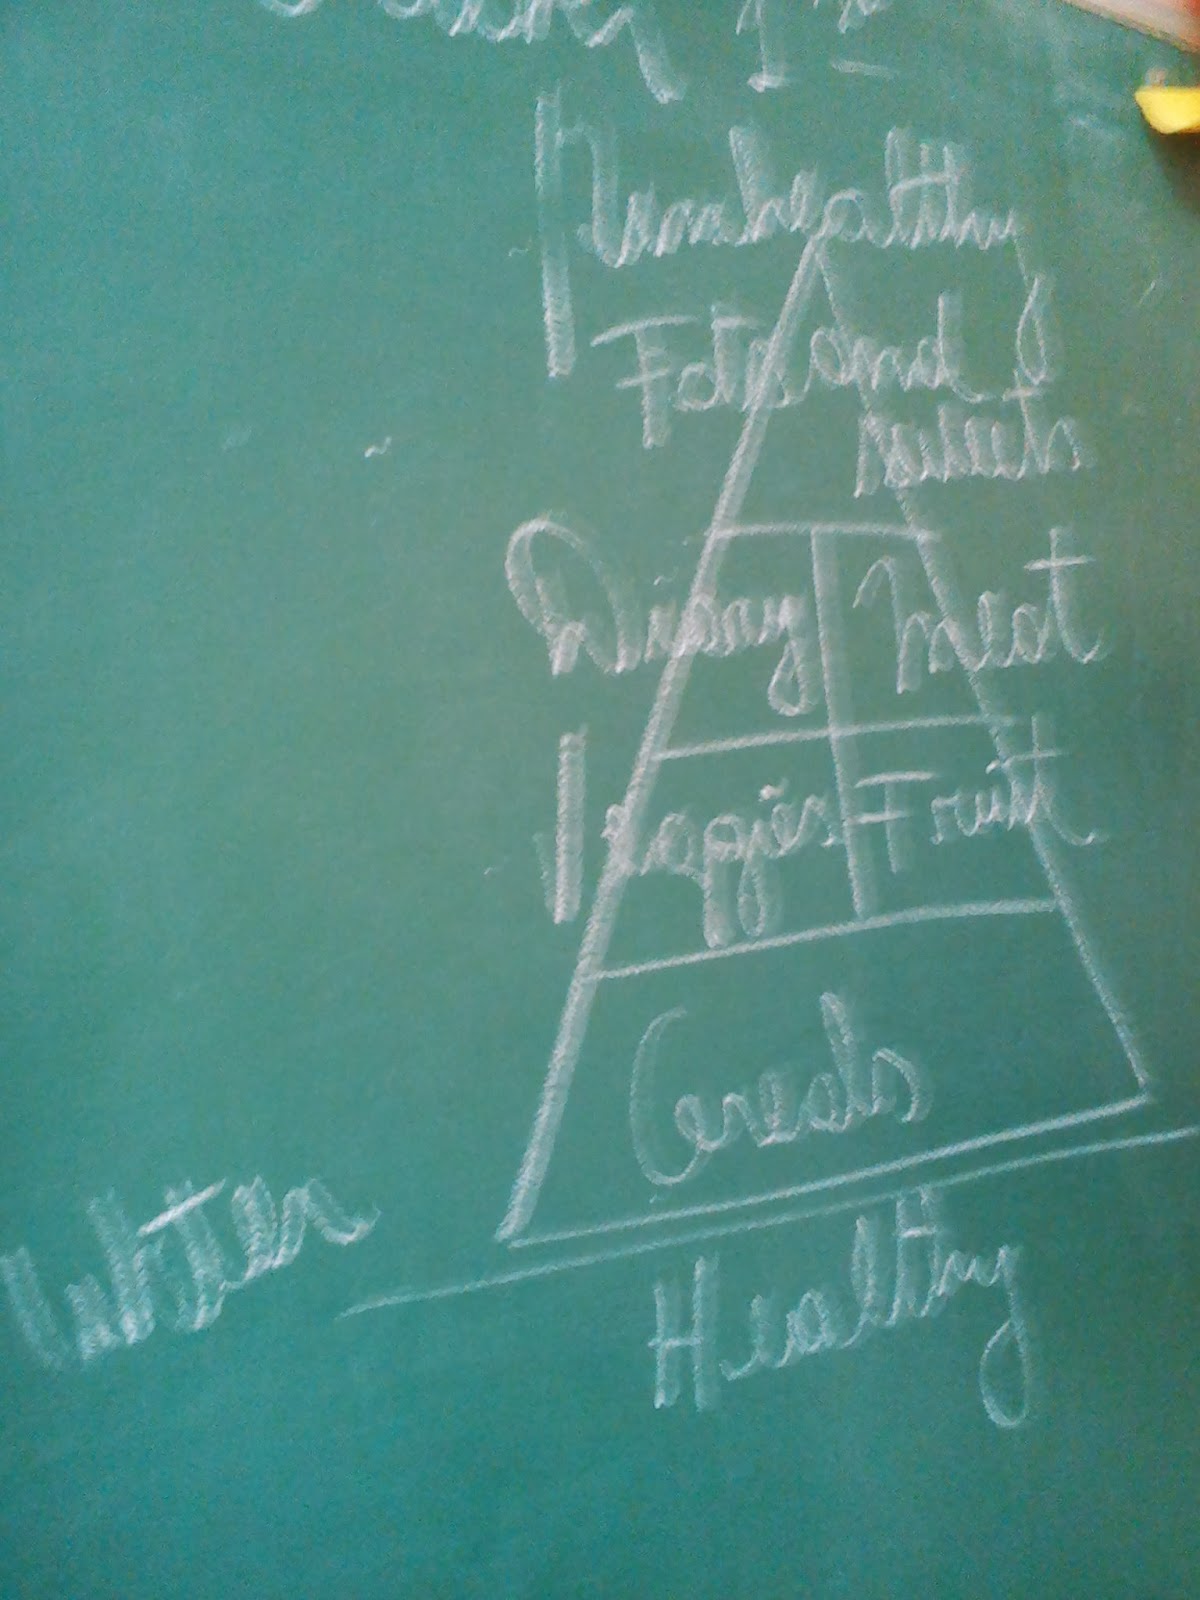 Unhealthy
Fats and
sweets
Diary Meat
Veggies Fruit
Cereals
Water
Healthy